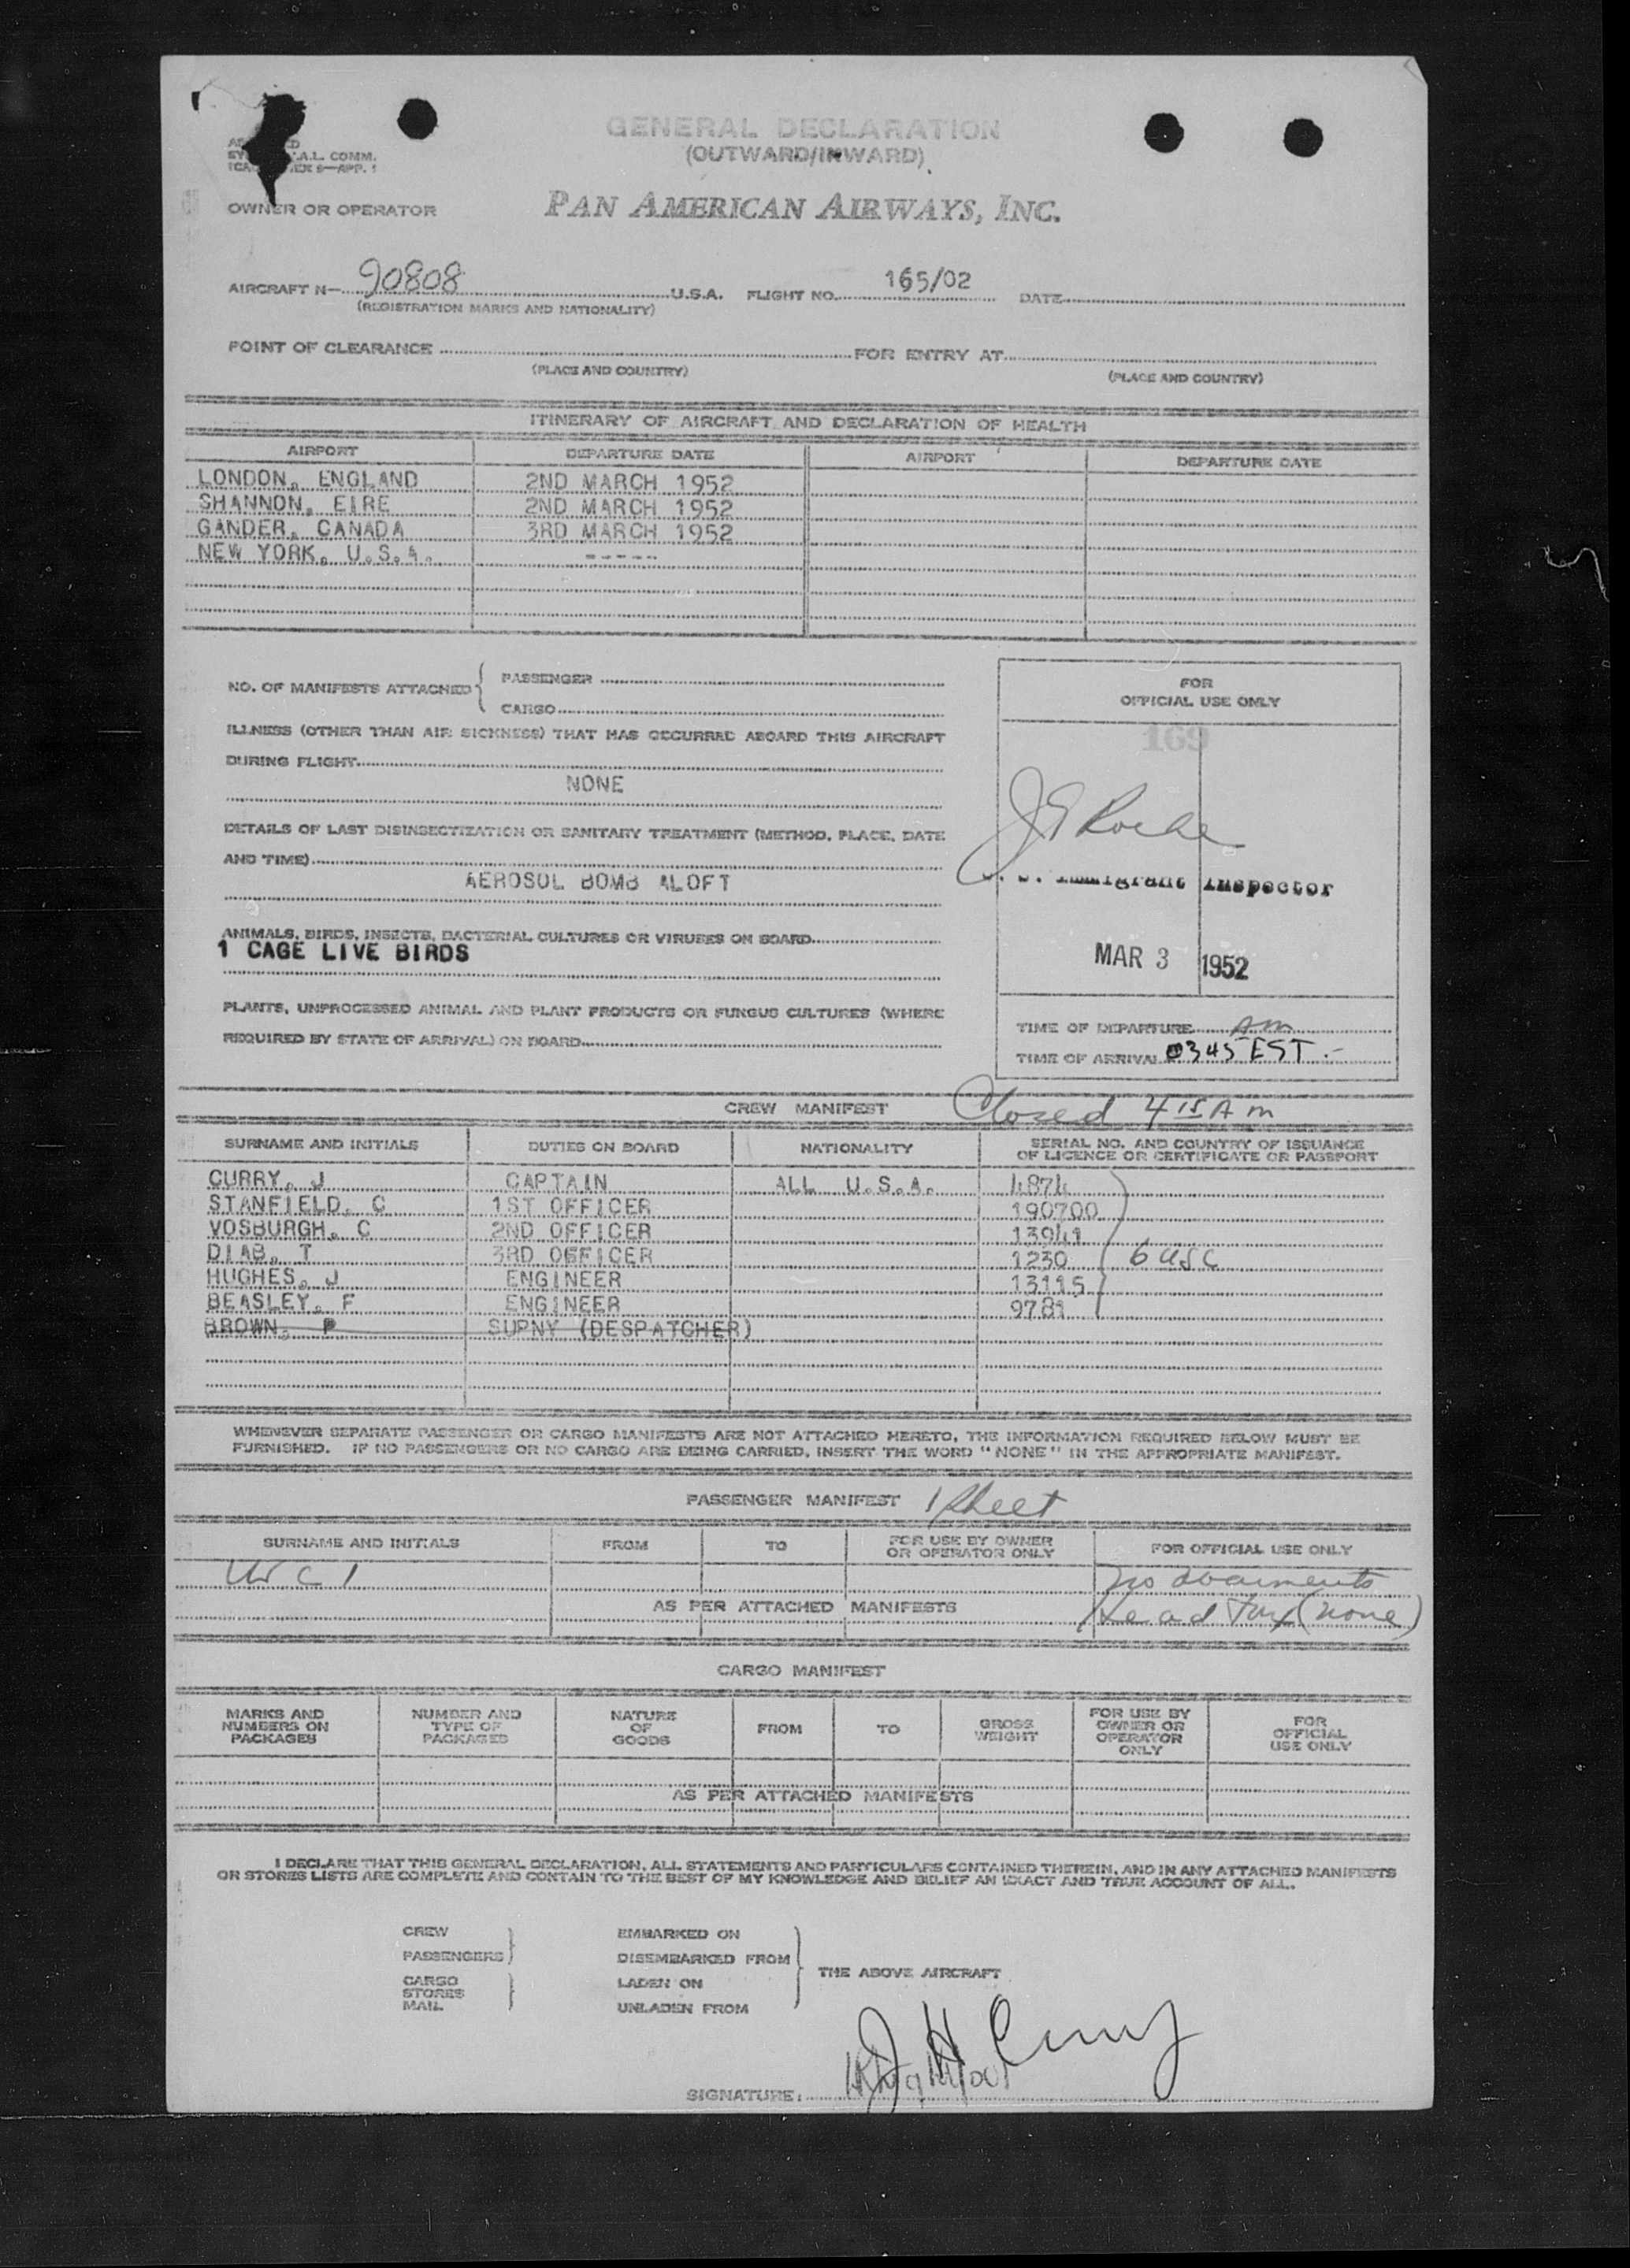 GENERAL DECLARATION
(OUTWARD/INWARD)
A.L. COMM.
APP. 1
OWNER OR OPERATOR PAN AMERICAN AIRWAYS, INC.
AIRCRAFT N— 90808 U.S.A. FLIGHT NO. 165/02 DATE
(REGISTRATION MARKS AND NATIONALITY)
POINT OF CLEARANCE FOR ENTRY AT
(PLACE AND COUNTRY) (PLACE AND COUNTRY)
ITINERARY OF AIRCRAFT AND DECLARATION OF HEALTH
AIRPORT DEPARTURE DATE AIRPORT DEPARTURE DATE
LONDON, ENGLAND 2ND MARCH 1952
SHANNON, EIRE 2ND MARCH 1952
GANDER, CANADA 3RD MARCH 1952
NEW YORK, U.S.A. -----
NO. OF MANIFESTS ATTACHED { PASSENGER
CARGO
FOR
OFFICIAL USE ONLY
169
ILLNESS (OTHER THAN AIR SICKNESS) THAT HAS OCCURRED ABOARD THIS AIRCRAFT
DURING FLIGHT
NONE
DETAILS OF LAST DISINSECTIZATION OR SANITARY TREATMENT (METHOD, PLACE, DATE
AND TIME)
AEROSOL BOMB ALOFT
J E Roche
Immigrant Inspector
ANIMALS, BIRDS, INSECTS, BACTERIAL CULTURES OR VIRUSES ON BOARD
1 CAGE LIVE BIRDS
MAR 3 1952
PLANTS, UNPROCESSED ANIMAL AND PLANT PRODUCTS OR FUNGUS CULTURES (WHERE
REQUIRED BY STATE OF ARRIVAL) ON BOARD
TIME OF DEPARTURE AM
TIME OF ARRIVAL 0345 EST.-
CREW MANIFEST Closed 4 15 AM
SURNAME AND INITIALS DUTIES ON BOARD NATIONALITY SERIAL NO. AND COUNTRY OF ISSUANCE
OF LICENCE OR CERTIFICATE OR PASSPORT
CURRY, J CAPTAIN ALL U.S.A. 4874
STANFIELD, C 1ST OFFICER 190700
VOSBURGH, C 2ND OFFICER 13941
DIAB, T 3RD OFFICER 1230 6 USC
HUGHES, J ENGINEER 13115
BEASLEY, F ENGINEER 9781
BROWN, P SUPNY (DESPATCHER)
WHENEVER SEPARATE PASSENGER OR CARGO MANIFESTS ARE NOT ATTACHED HERETO, THE INFORMATION REQUIRED BELOW MUST BE
FURNISHED. IF NO PASSENGERS OR NO CARGO ARE BEING CARRIED, INSERT THE WORD "NONE" IN THE APPROPRIATE MANIFEST.
PASSENGER MANIFEST 1 Sheet
SURNAME AND INITIALS FROM TO FOR USE BY OWNER
OR OPERATOR ONLY FOR OFFICIAL USE ONLY
no documents
AS PER ATTACHED MANIFESTS Head Tax (none)
CARGO MANIFEST
MARKS AND
NUMBERS ON
PACKAGES
NUMBER AND
TYPE OF
PACKAGES
NATURE
OF
GOODS
FROM
TO
GROSS
WEIGHT
FOR USE BY
OWNER OR
OPERATOR
ONLY
FOR
OFFICIAL
USE ONLY
AS PER ATTACHED MANIFESTS
I DECLARE THAT THIS GENERAL DECLARATION, ALL STATEMENTS AND PARTICULARS CONTAINED THEREIN, AND IN ANY ATTACHED MANIFESTS
OR STORES LISTS ARE COMPLETE AND CONTAIN TO THE BEST OF MY KNOWLEDGE AND BELIEF AN EXACT AND TRUE ACCOUNT OF ALL.
CREW EMBARKED ON
PASSENGERS DISEMBARKED FROM
CARGO LADEN ON THE ABOVE AIRCRAFT
STORES
MAIL UNLADEN FROM
J H Curry
SIGNATURE: